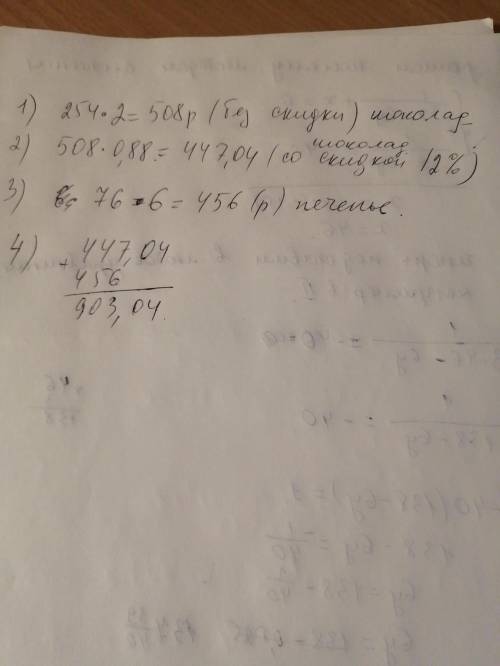 1) 254·2=508р (без скидки) шоколад
2) 508·0,88=447,04 (шоколад со скидкой 12%)
3) 76·6=456 (р) печенье.
4) +447,04
456
903,04.